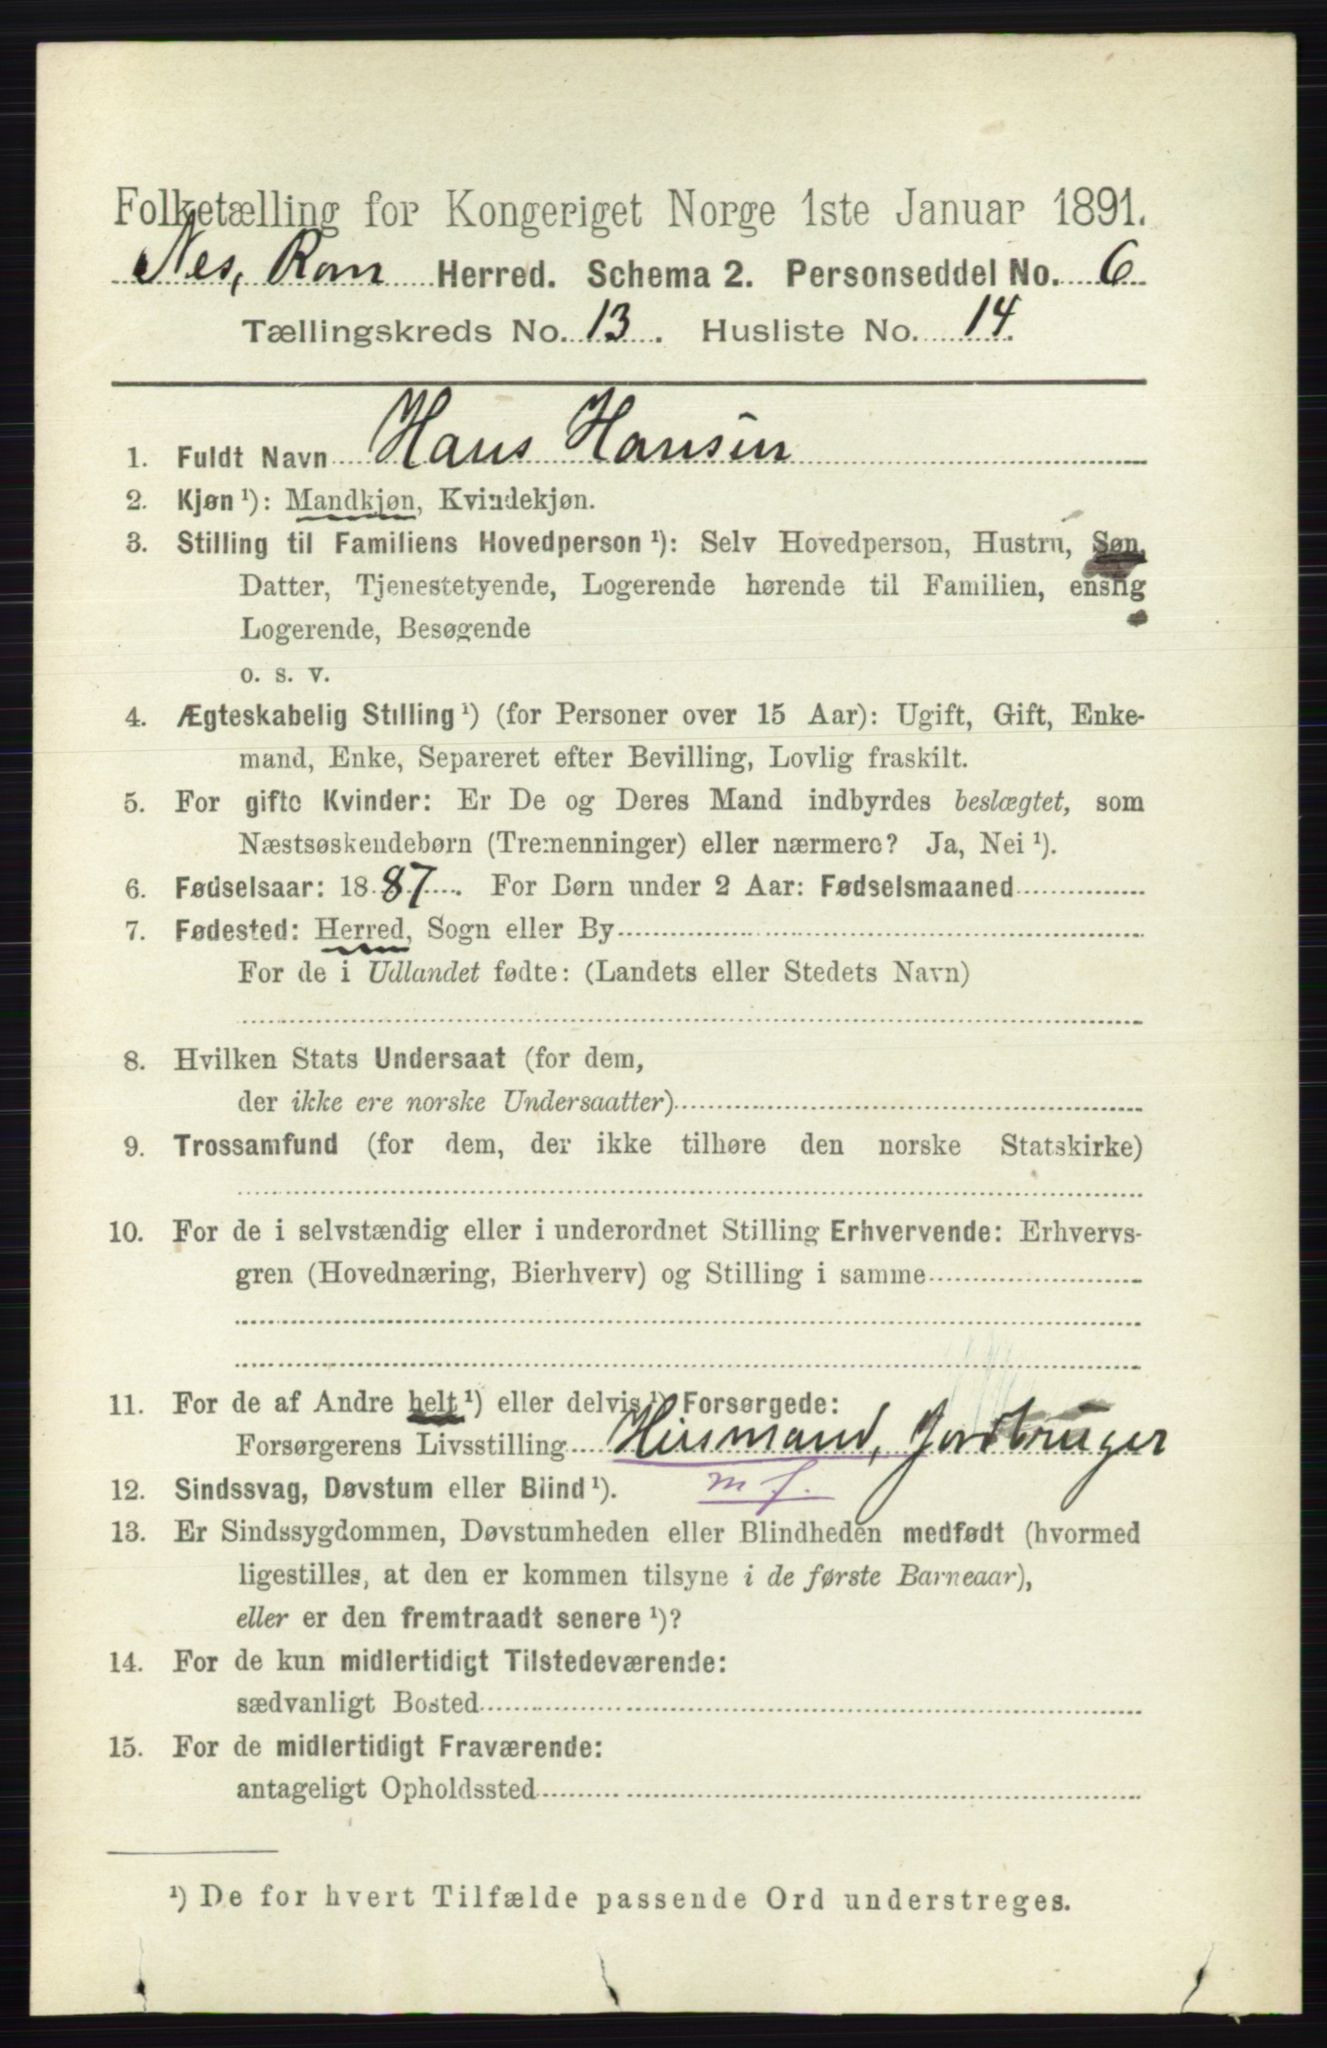 Folketælling for Kongeriget Norge 1ste Januar 1891.
Nes, Rom Herred. Schema 2. Personseddel No. 6
Tællingskreds No. 13. Husliste No. 14.
1. Fuldt Navn Hans Hansen
2. Kjøn ¹): Mandkjøn, Kvindekjøn.
3. Stilling til Familiens Hovedperson ¹): Selv Hovedperson, Hustru, Søn,
Datter, Tjenestetyende, Logerende hørende til Familien, enslig
Logerende, Besøgende
o. s. v.
4. Ægteskabelig Stilling ¹) (for Personer over 15 Aar): Ugift, Gift, Enke-
mand, Enke, Separeret efter Bevilling, Lovlig fraskilt.
5. For gifte Kvinder: Er De og Deres Mand indbyrdes beslægtet, som
Næstsøskendebørn (Tremenninger) eller nærmere? Ja, Nei ¹).
6. Fødselsaar: 1887. For Børn under 2 Aar: Fødselsmaaned
7. Fødested: Herred, Sogn eller By
For de i Udlandet fødte: (Landets eller Stedets Navn)
8. Hvilken Stats Undersaat (for dem,
der ikke ere norske Undersaatter)
9. Trossamfund (for dem, der ikke tilhøre den norske Statskirke)
10. For de i selvstændig eller i underordnet Stilling Erhvervende: Erhvervs-
gren (Hovednæring, Bierhverv) og Stilling i samme
11. For de af Andre helt ¹) eller delvis ¹) Forsørgede:
Forsørgerens Livsstilling Husmand, Jordbruger
m f.
12. Sindssvag, Døvstum eller Blind ¹).
13. Er Sindssygdommen, Døvstumheden eller Blindheden medfødt (hvormed
ligestilles, at den er kommen tilsyne i de første Barneaar),
eller er den fremtraadt senere ¹)?
14. For de kun midlertidigt Tilstedeværende:
sædvanligt Bosted
15. For de midlertidigt Fraværende:
antageligt Opholdssted
¹) De for hvert Tilfælde passende Ord understreges.